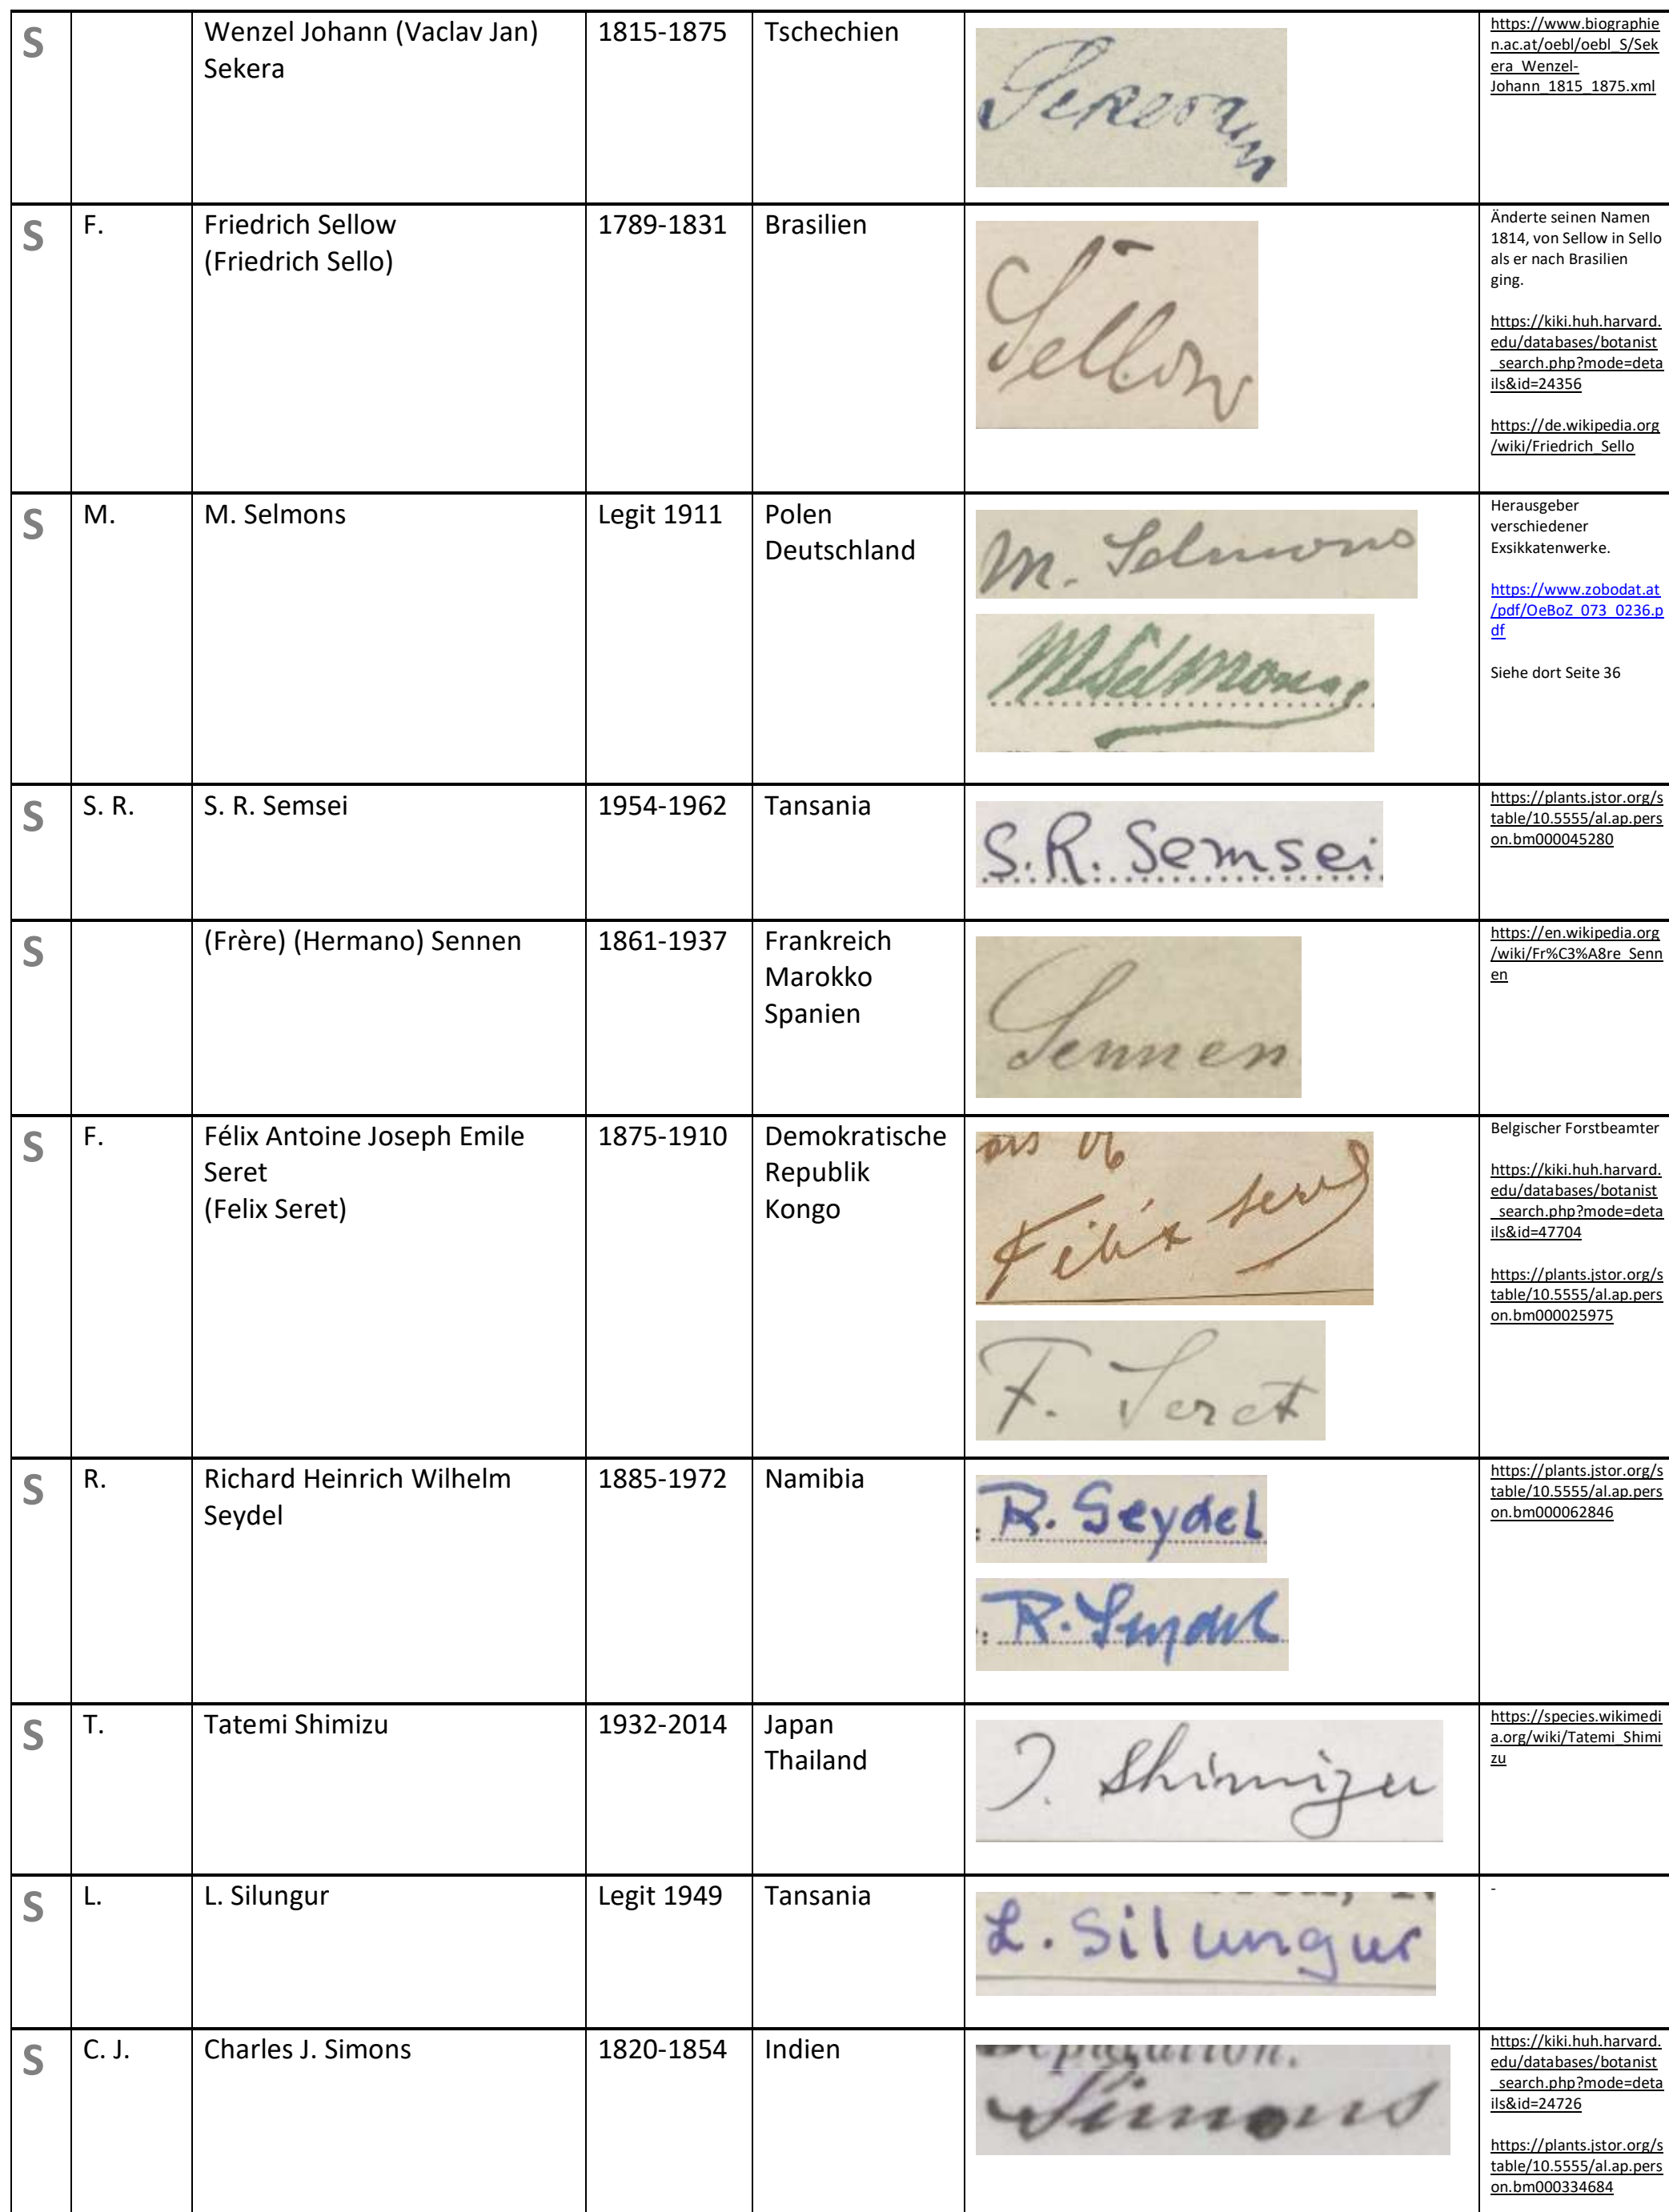 S
Wenzel Johann (Vaclav Jan)
Sekera
1815-1875
Tschechien
Sekera
https://www.biographie
n.ac.at/oebl/oebl_S/Sek
era_Wenzel-
Johann_1815_1875.xml
S
F.
Friedrich Sellow
(Friedrich Sello)
1789-1831
Brasilien
Sellow
Änderte seinen Namen
1814, von Sellow in Sello
als er nach Brasilien
ging.
https://kiki.huh.harvard.
edu/databases/botanist
_search.php?mode=deta
ils&id=24356
https://de.wikipedia.org
/wiki/Friedrich_Sello
S
M.
M. Selmons
Legit 1911
Polen
Deutschland
M. Selmons
MSelmons
Herausgeber
verschiedener
Exsikkatenwerke.
https://www.zobodat.at
/pdf/OeBoZ_073_0236.p
df
Siehe dort Seite 36
S
S. R.
S. R. Semsei
1954-1962
Tansania
S.R. Semsei
https://plants.jstor.org/s
table/10.5555/al.ap.pers
on.bm000045280
S
(Frère) (Hermano) Sennen
1861-1937
Frankreich
Marokko
Spanien
Sennen
https://en.wikipedia.org
/wiki/Fr%C3%A8re_Senn
en
S
F.
Félix Antoine Joseph Emile
Seret
(Felix Seret)
1875-1910
Demokratische
Republik
Kongo
Félix Seret
F. Seret
Belgischer Forstbeamter
https://kiki.huh.harvard.
edu/databases/botanist
_search.php?mode=deta
ils&id=47704
https://plants.jstor.org/s
table/10.5555/al.ap.pers
on.bm000025975
S
R.
Richard Heinrich Wilhelm
Seydel
1885-1972
Namibia
R. Seydel
R. Seydel
https://plants.jstor.org/s
table/10.5555/al.ap.pers
on.bm000062846
S
T.
Tatemi Shimizu
1932-2014
Japan
Thailand
T. Shimizu
https://species.wikimedi
a.org/wiki/Tatemi_Shimi
zu
S
L.
L. Silungur
Legit 1949
Tansania
L. Silungur
-
S
C. J.
Charles J. Simons
1820-1854
Indien
Simons
https://kiki.huh.harvard.
edu/databases/botanist
_search.php?mode=deta
ils&id=24726
https://plants.jstor.org/s
table/10.5555/al.ap.pers
on.bm000334684